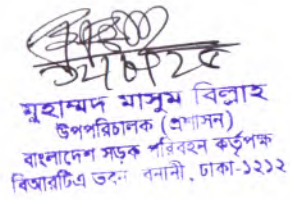 মুহাম্মদ মাসুম বিল্লাহ
উপপরিচালক (প্রশাসন)
বাংলাদেশ সড়ক পরিবহন কর্তৃপক্ষ
বিআরটিএ ভবন বনানী, ঢাকা-১২১২